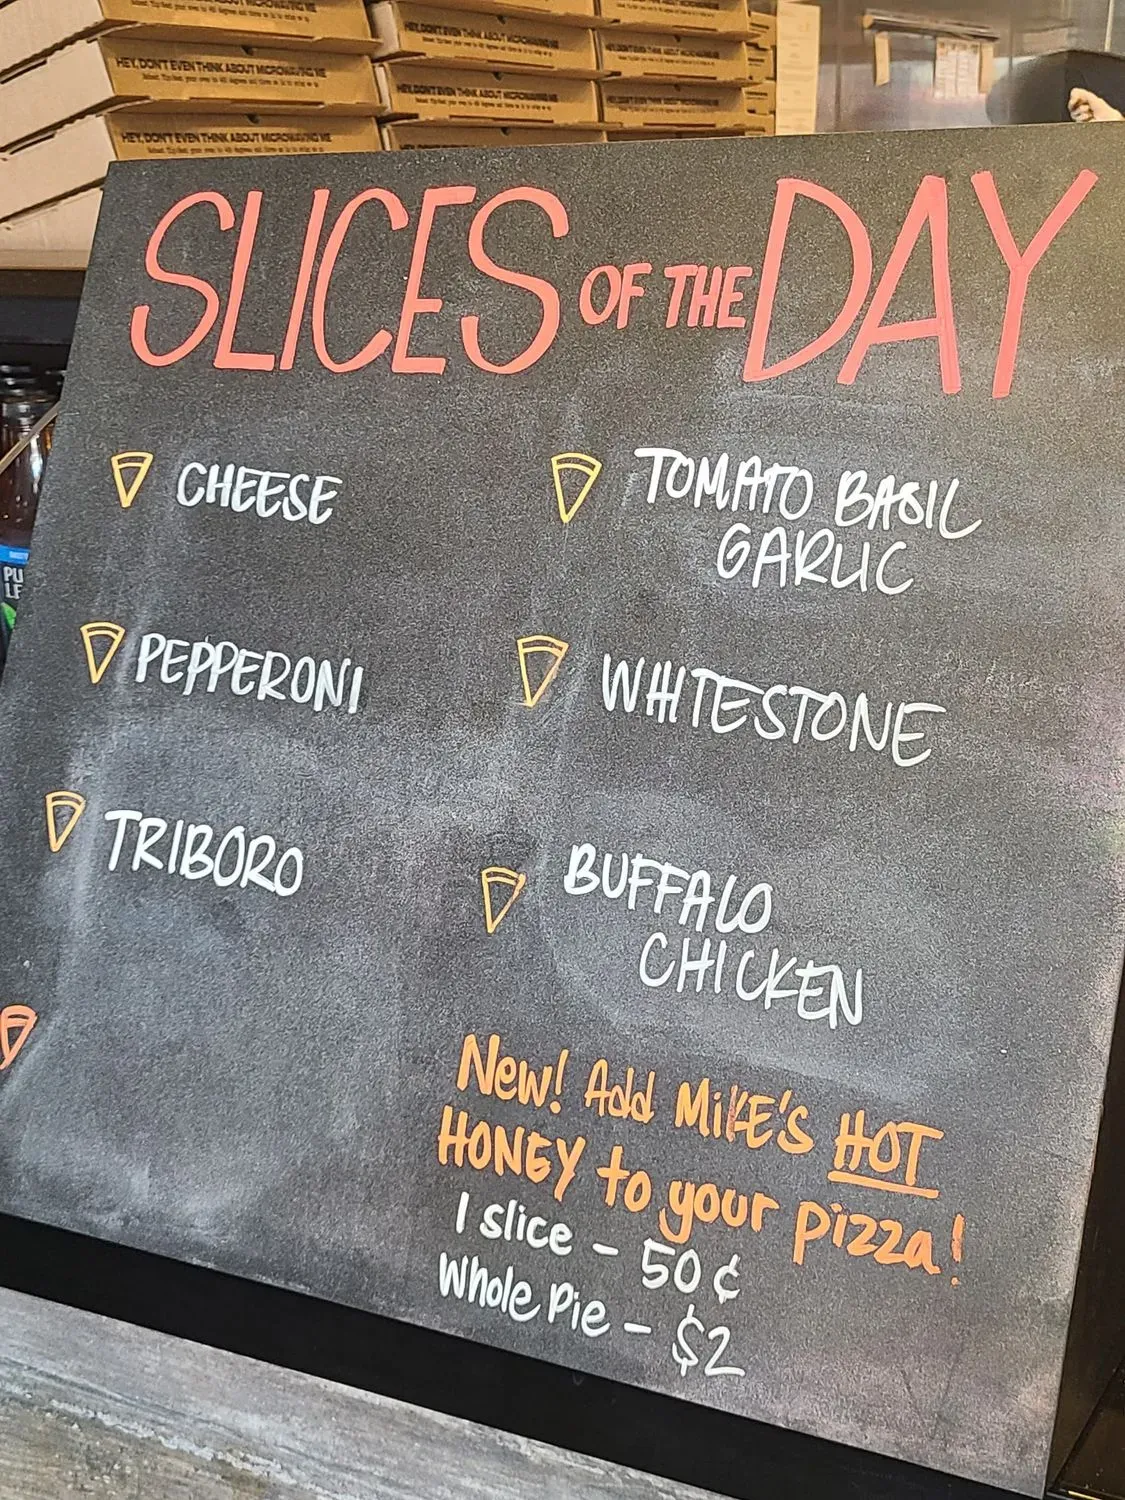 HEY, DON'T EVEN THINK ABOUT MICROWAVING ME
HEY, DON'T EVEN THINK ABOUT MICROWAVING ME
HEY, DON'T EVEN THINK ABOUT MICROWAVING ME
SLICES OF THE DAY
CHEESE
PEPPERONI
TRIBORO
TOMATO BASIL
GARLIC
WHITESTONE
BUFFALO
CHICKEN
New! Add MiKE'S HOT
HONEY to your pizza!
1 slice – 50¢
Whole Pie – $2